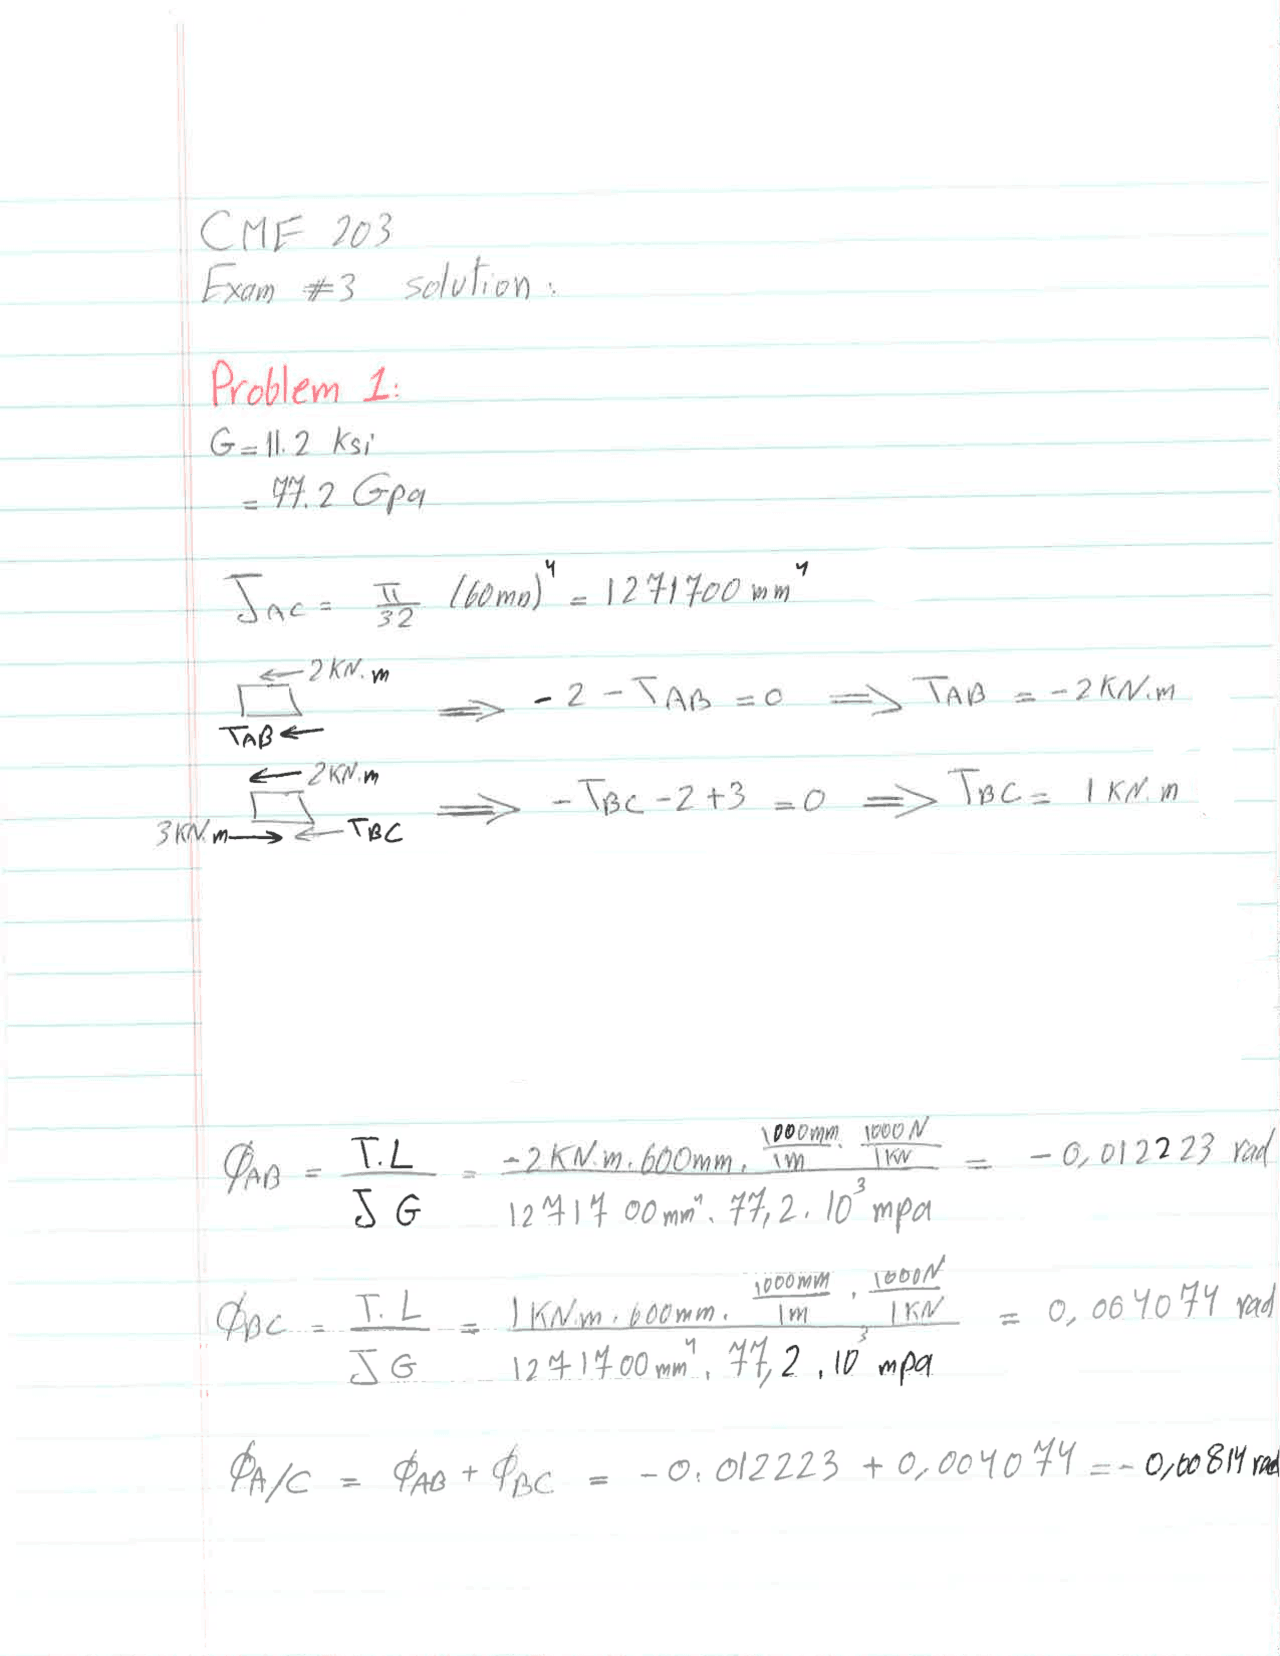 CME 203
Exam #3 solution:
Problem 1:
G = 11.2 ksi
= 77.2 Gpa
J_AC = π/32 (60mm)^4 = 1271700 mm^4
← 2 KN.m
T_AB ← ⟹ - 2 - T_AB = 0 ⟹ T_AB = -2 KN.m
← 2 KN.m
3 KN.m → ← T_BC ⟹ - T_BC - 2 + 3 = 0 ⟹ T_BC = 1 KN.m
φ_AB = T.L / J G = -2 KN.m. 600mm. 1000mm/1m . 1000N/1KN / 1271700mm^4. 77,2. 10^3 mpa = -0,012223 rad
φ_BC = T.L / J G = 1 KN.m. 600mm. 1000mm/1m . 1000N/1KN / 1271700mm^4. 77,2 .10^3 mpa = 0,004074 rad
φ_A/C = φ_AB + φ_BC = -0.012223 + 0,004074 = - 0,00814 rad